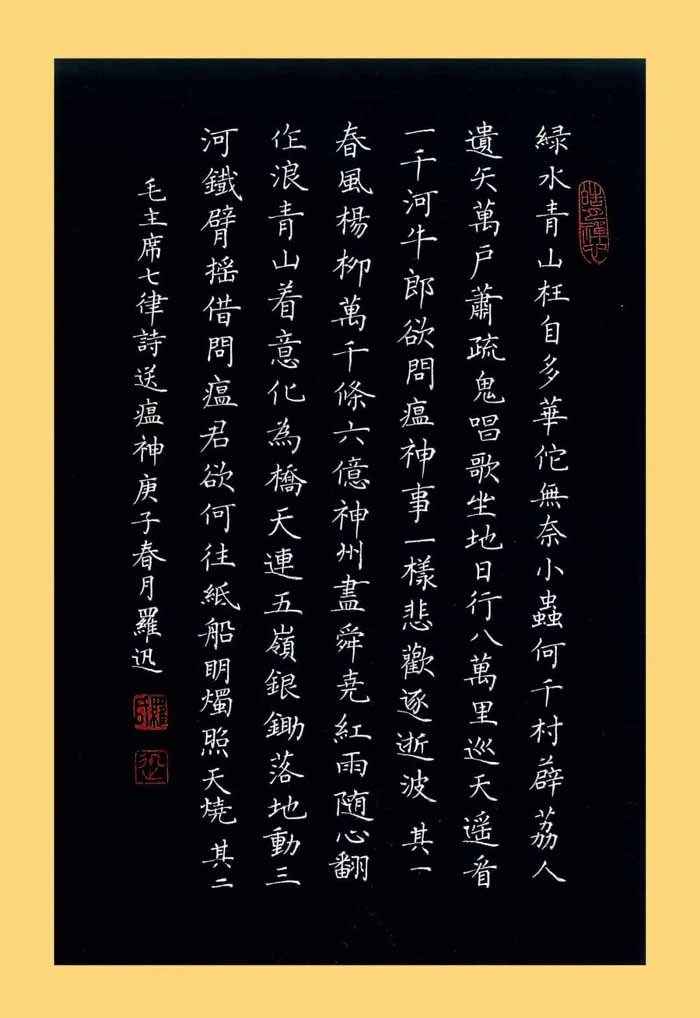 緑水青山枉自多華佗無奈小蟲何千村薜荔人
遺矢萬戶蕭疏鬼唱歌坐地日行八萬里巡天遥看
一千河牛郎欲問瘟神事一樣悲歡逐逝波 其一
春風楊柳萬千條六億神州盡舜堯紅雨随心翻
作浪青山着意化為橋天連五嶺銀鋤落地動三
河鐵臂摇借問瘟君欲何往紙船明燭照天燒 其二
毛主席七律詩送瘟神庚子春月羅迅